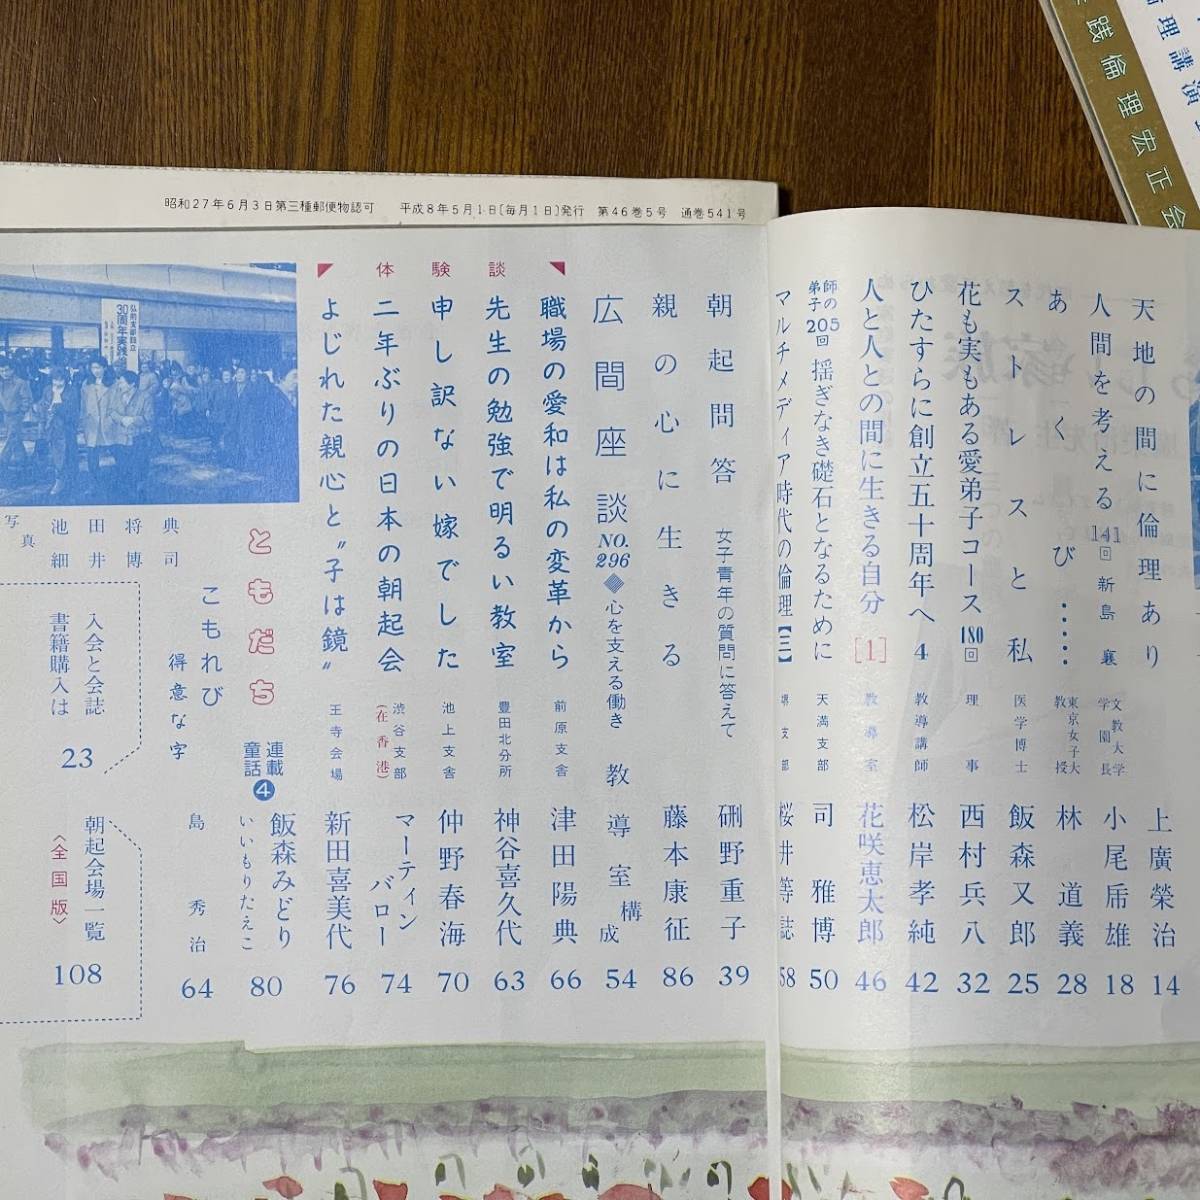 昭和27年6月3日第三種郵便物認可　平成8年5月1日〔毎月1日〕発行　第46巻5号　通巻541号
天地の間に倫理あり　上廣榮治　14
人間を考える　141回　新島　襄　文教大学学園長　小尾乕雄　18
あくび……　東京女子大教授　林　道義　28
ストレスと私　医学博士　飯森又郎　25
花も実もある愛弟子コース　180回　理事　西村兵八　32
ひたすらに創立五十周年へ　4　教導講師　松岸孝純　42
人と人との間に生きる自分　[1]　教導室　花咲恵太郎　46
師の弟子205回　揺ぎなき礎石となるために　天満支部　司　雅博　50
マルチメディア時代の倫理【三】　堺支部　桜井等誌　58
朝起問答　女子青年の質問に答えて　硎野重子　39
親の心に生きる　藤本康征　86
広間座談　NO.296　◆心を支える働き　教導室構成　54
体験談
職場の愛和は私の変革から　前原支舎　津田陽典　66
先生の勉強で明るい教室　豊田北分所　神谷喜久代　63
申し訳ない嫁でした　池上支舎　仲野春海　70
二年ぶりの日本の朝起会　渋谷支部（在香港）　マーティンバロー　74
よじれた親心と〝子は鏡〟　王寺会場　新田喜美代　76
ともだち　連載童話❹　飯森みどり　いいもりたえこ　80
こもれび　得意な字　島　秀治　64
弘前支部設立
30周年実践
写真　池田将典
細井博司
入会と会誌
書籍購入は　23
朝起会場一覧
〈全国版〉　108
践倫理宏正会
倫理講演
家族